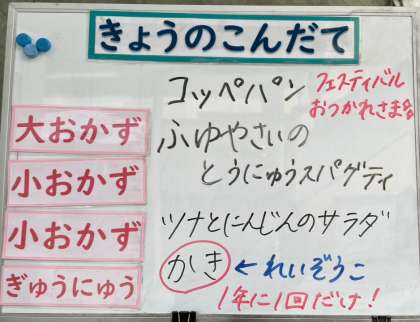 きょうのこんだて
コッペパン
フェスティバル
おつかれさま会
大おかず
ふゆやさいの
とうにゅうスパゲティ
小おかず
小おかず
ツナとにんじんのサラダ
かき ← れいぞうこ
ぎゅうにゅう
1年に1回だけ!